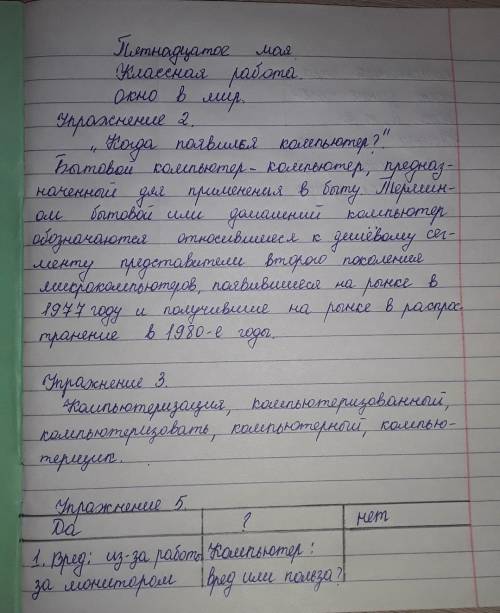 Пятнадцатое мая
Классная работа.
Окно в мир.
Упражнение 2.
„Когда появился компьютер?"
Бытовой компьютер - компьютер, предназ-
наченный для применения в быту. Термин-
ом бытовой или домашний компьютер
обозначаются относившиеся к дешёвому сег-
менту представители второго поколения
микрокомпьютеров, появившиеся на рынке в
1977 году и получившие на рынке в распрос-
транение в 1980-е годы.
Упражнение 3.
Компьютеризация, компьютеризованный,
компьютеризовать, компьютерный, компью-
терщик.
Упражнение 5.
Да ? нет
1. Вред: из-за работы Компьютер:
за монитором вред или польза?